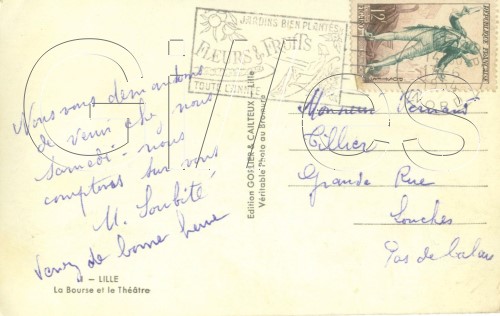 JARDINS BIEN PLANTÉS
FLEURS & FRUITS
TOUTE L'ANNÉE
12F
REPUBLIQUE FRANÇAISE
Nous vous demandons
de venir chez nous
Samedi - nous
comptons sur vous
M. Soubité
Venez de bonne heure
Edition GOSSIER & CAILTEUX Lille
Véritable Photo au Bromure
Monsieur
Cillier
Grande Rue
Louches
Pas de Calais
- LILLE
La Bourse et le Théâtre